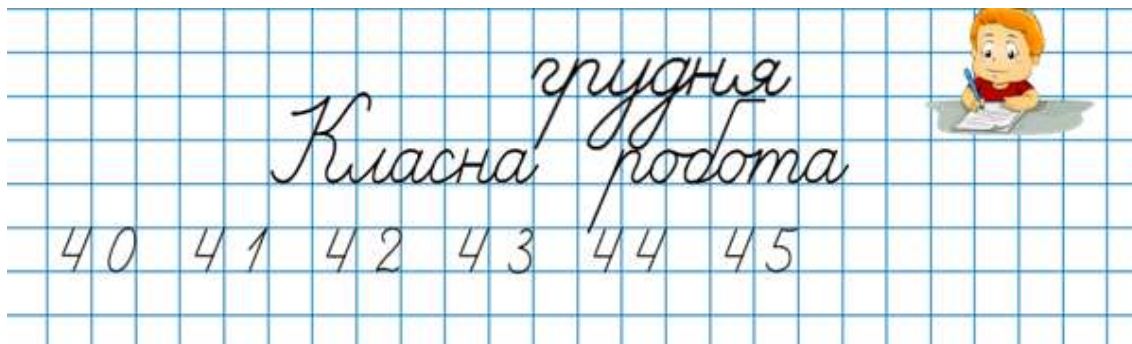 грудня
Класна робота
40 41 42 43 44 45